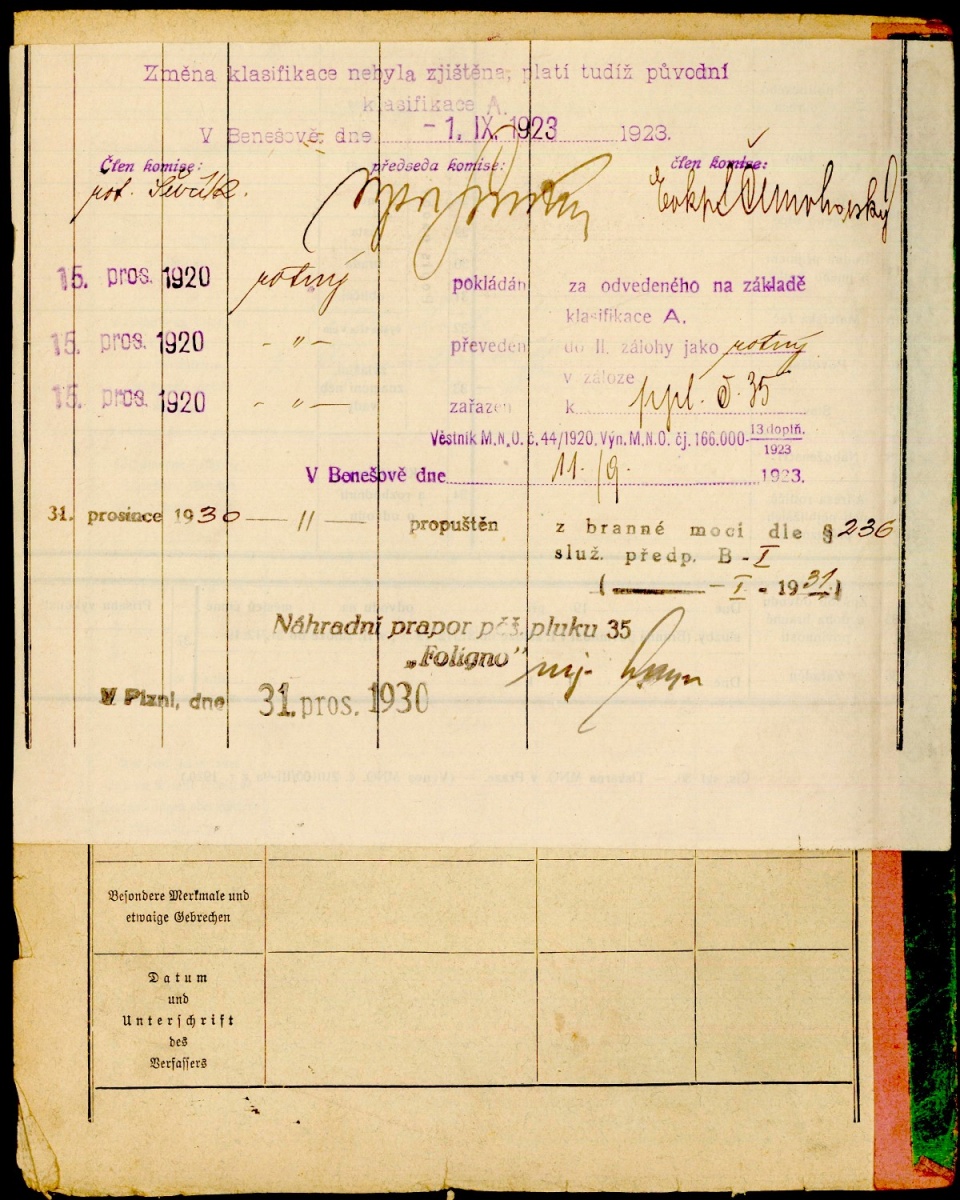 Změna klasifikace nebyla zjištěna, platí tudíž původní
klasifikace A.
V Benešově, dne - 1. IX. 1923 1923.
Člen komise: předseda komise: člen komise:
rot. Ševčík.
15. pros. 1920 rotný pokládán za odvedeného na základě
klasifikace A.
15. pros. 1920 - " - převeden do II. zálohy jako rotný
v záloze
15. pros. 1920 - " - zařazen k ppl. č. 35
Věstník M.N.O. č. 44/1920. Výn. M.N.O. čj. 166.000-13 doplň./1923
V Benešově dne 11./9. 1923.
31. prosince 1930 — " — propuštěn z branné moci dle § 236
služ. předp. B-I
( — I - 1931 )
Náhradní prapor pěš. pluku 35
„Foligno"
mjr.
V Plzni, dne 31. pros. 1930
Besondere Merkmale und
etwaige Gebrechen
Datum
und
Unterschrift
des
Verfassers